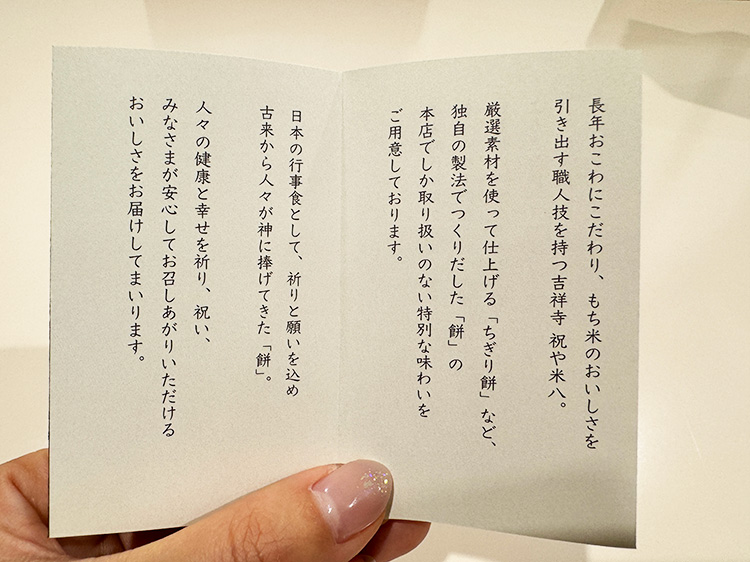 長年おこわにこだわり、もち米のおいしさを
引き出す職人技を持つ吉祥寺 祝や米八。
厳選素材を使って仕上げる「ちぎり餅」など、
独自の製法でつくりだした「餅」の
本店でしか取り扱いのない特別な味わいを
ご用意しております。
日本の行事食として、祈りと願いを込め
古来から人々が神に捧げてきた「餅」。
人々の健康と幸せを祈り、祝い、
みなさまが安心してお召しあがりいただける
おいしさをお届けしてまいります。